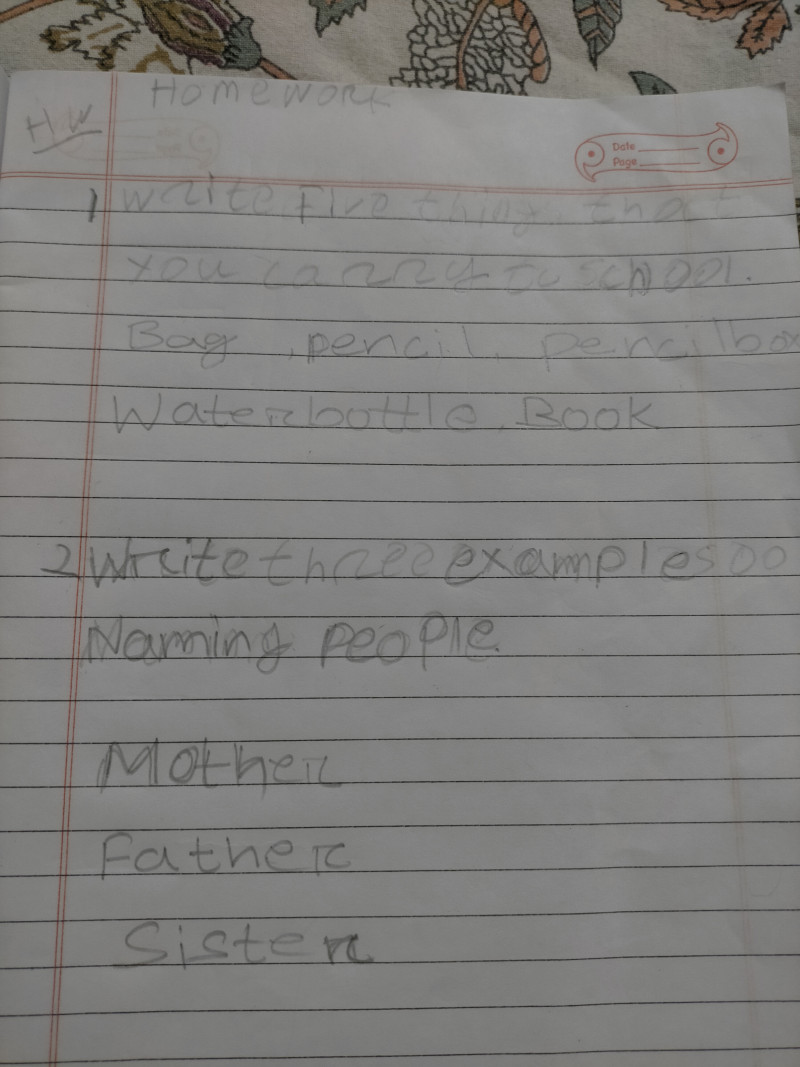 Homework
HW
Date
Page
1 Write Five thing that
you carry to school.
Bag, pencil, pencilbox
Waterbottle, Book
2 Write three examples oo
Naming people
Mother
Father
Sister